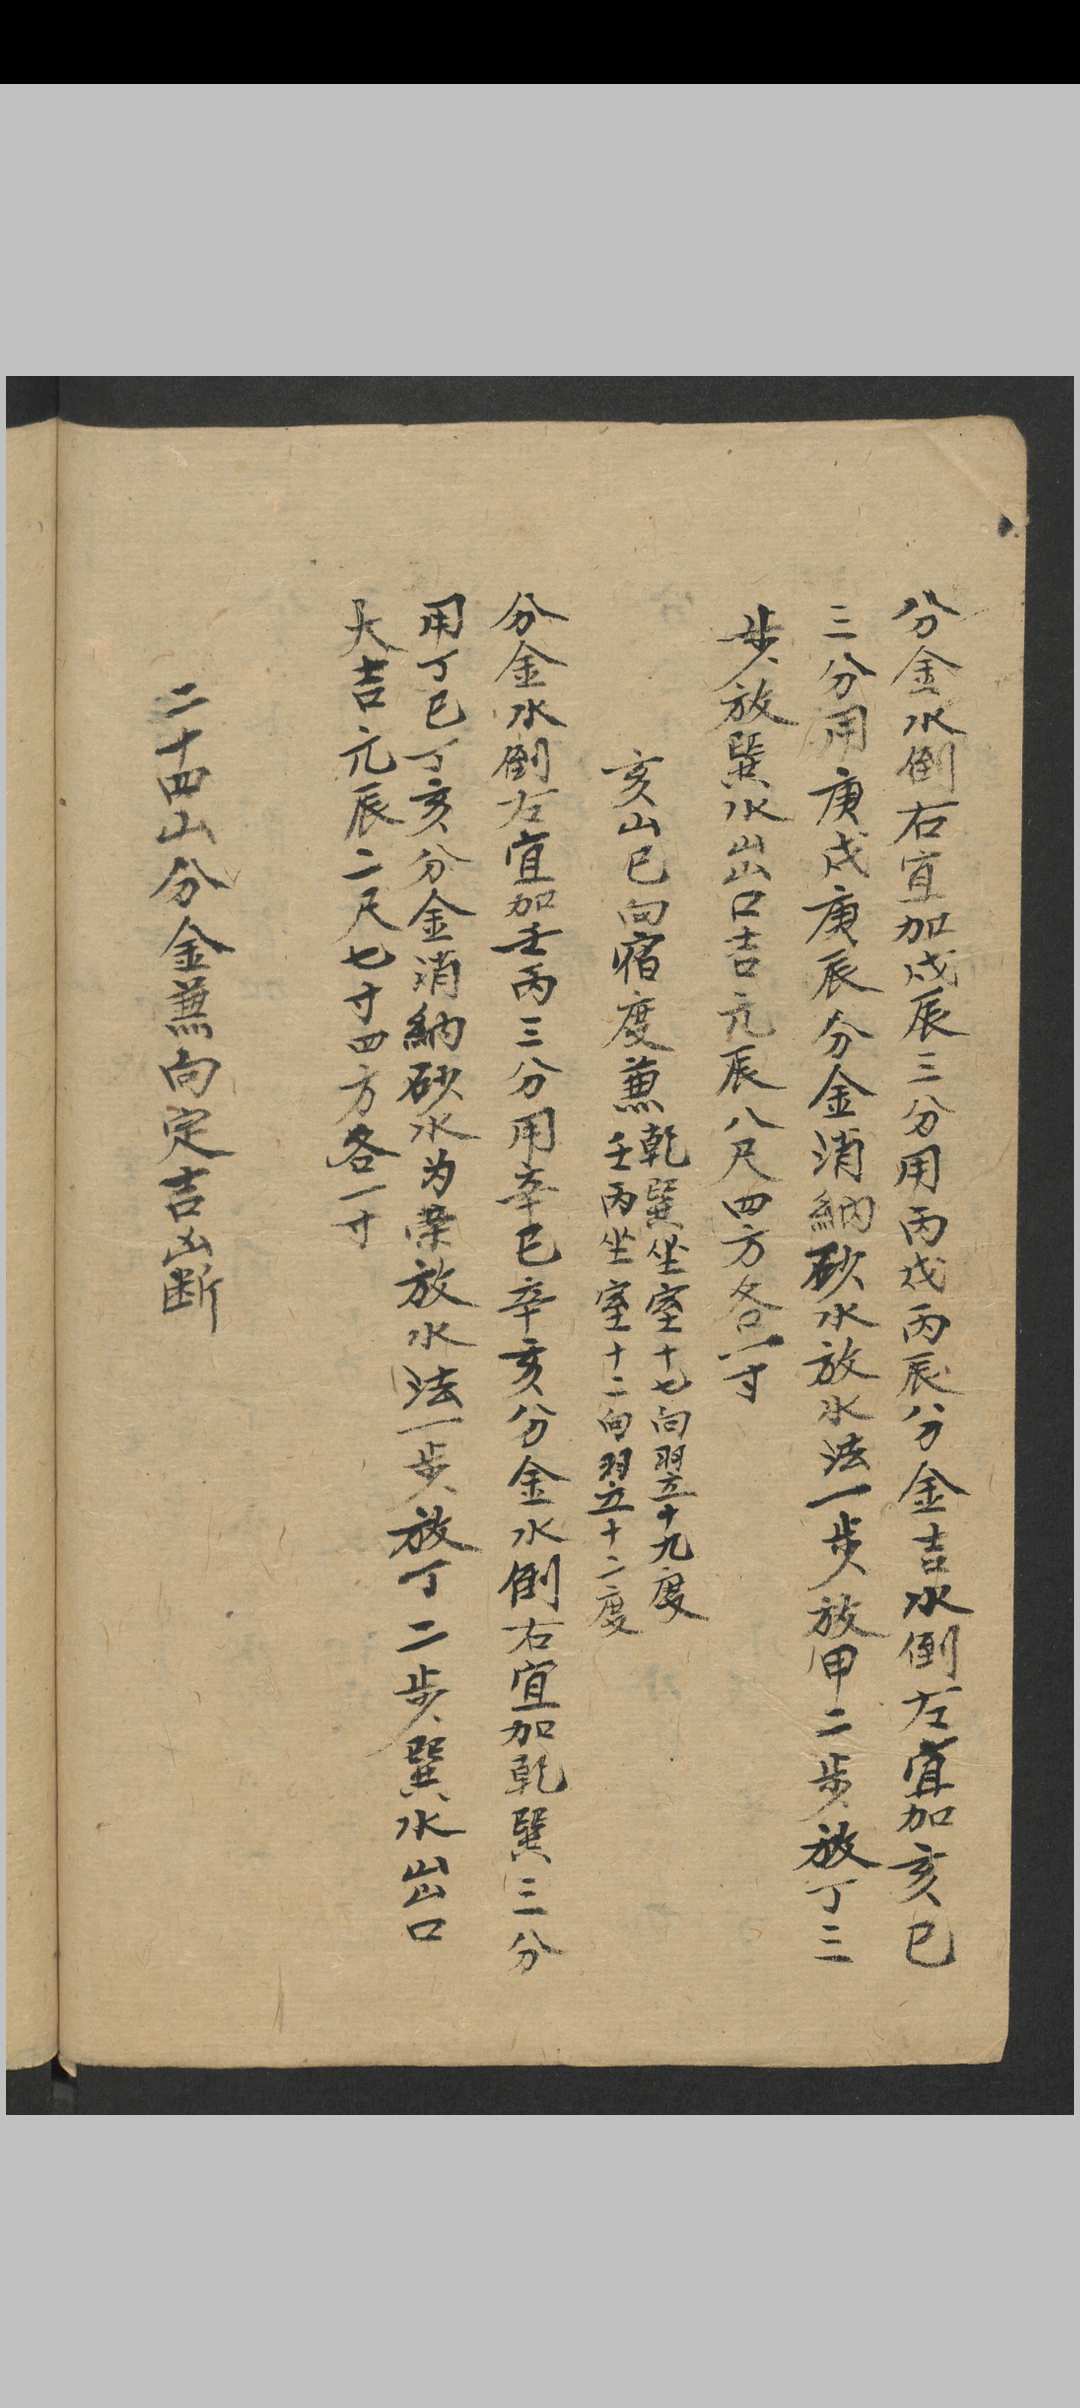 分金水倒右宜加戌辰三分用丙戌丙辰分金吉水倒左宜加亥巳
三分用庚戌庚辰分金消納砂水放水法一步放甲二步放丁三
步放巽水出口吉元辰八尺四方各一寸
亥山巳向宿度兼
乾巽坐室十七向翌十九度
壬丙坐室十二向翌十二度
分金水倒左宜加壬丙三分用辛巳辛亥分金水倒右宜加乾巽三分
用丁巳丁亥分金消納砂水为荣放水法一步放丁二步巽水出口
大吉元辰二尺七寸四方各一寸
二十四山分金兼向定吉凶断